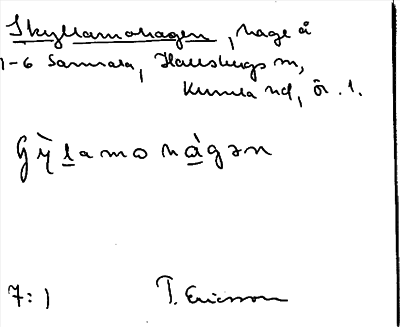 Skyllamohagen, hage å
1-6 Sannala, Hallsbergs sn,
Kumla hd, Ör. l.
Gỳlamohàgən
7:1
T. Ericsson